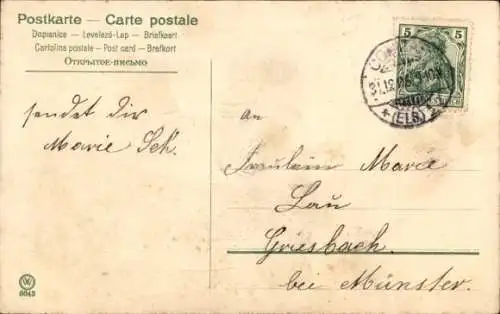 Postkarte — Carte postale
Dopisnice — Levelező-Lap — Briefkaart
Cartolina postale — Post card — Brefkort
Открытое-письмо
5 5
31.12.06
(ELS.)
sendet dir
Marie Sch.
An
Fräulein Marie
Lau
Griesbach.
bei Münster.
W
6043